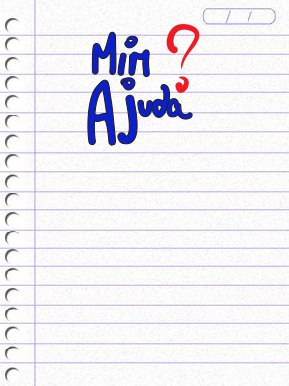 / /
Mim ?
Ajuda